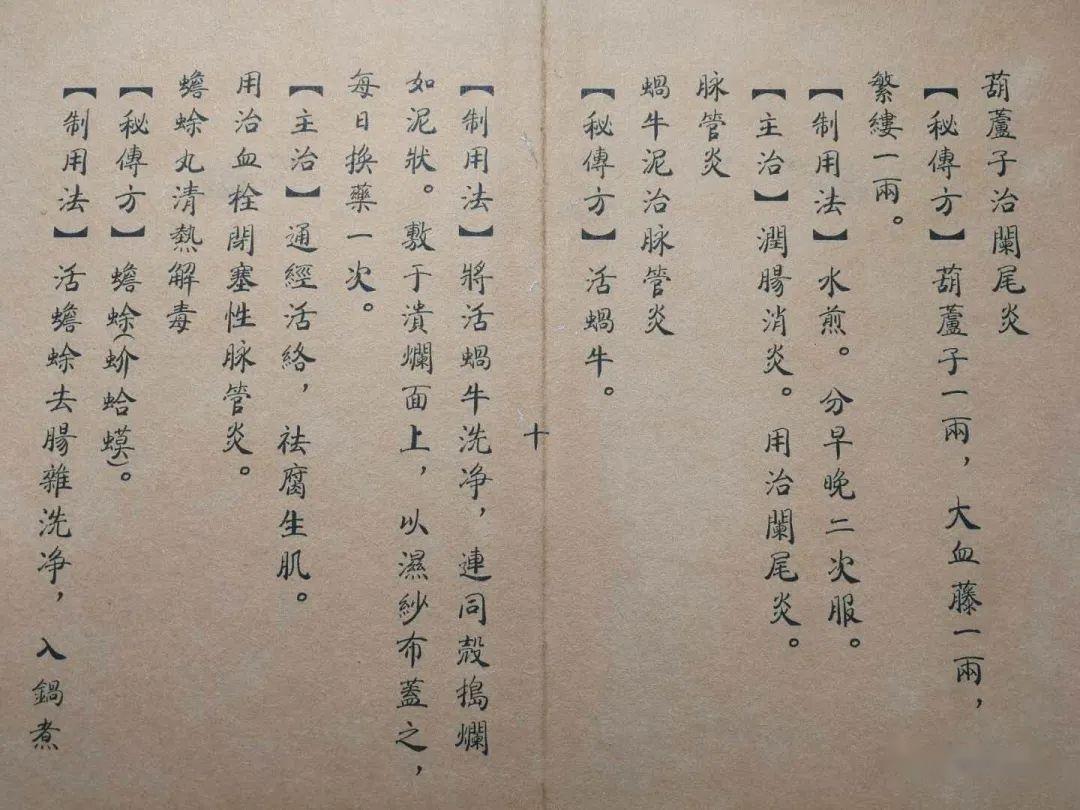 葫蘆子治闌尾炎
【秘傳方】葫蘆子一兩，大血藤一兩，
繁縷一兩。
【制用法】水煎。分早晚二次服。
【主治】潤腸消炎。用治闌尾炎。
脉管炎
蝸牛泥治脉管炎
【秘傳方】活蝸牛。
十
【制用法】將活蝸牛洗净，連同殻搗爛
如泥狀。敷于潰爛面上，以濕紗布蓋之，
每日换藥一次。
【主治】通經活絡，祛腐生肌。
用治血栓閉塞性脉管炎。
蟾蜍丸清熱解毒
【秘傳方】蟾蜍（蚧蛤蟆）。
【制用法】活蟾蜍去腸雜洗净，入鍋煮